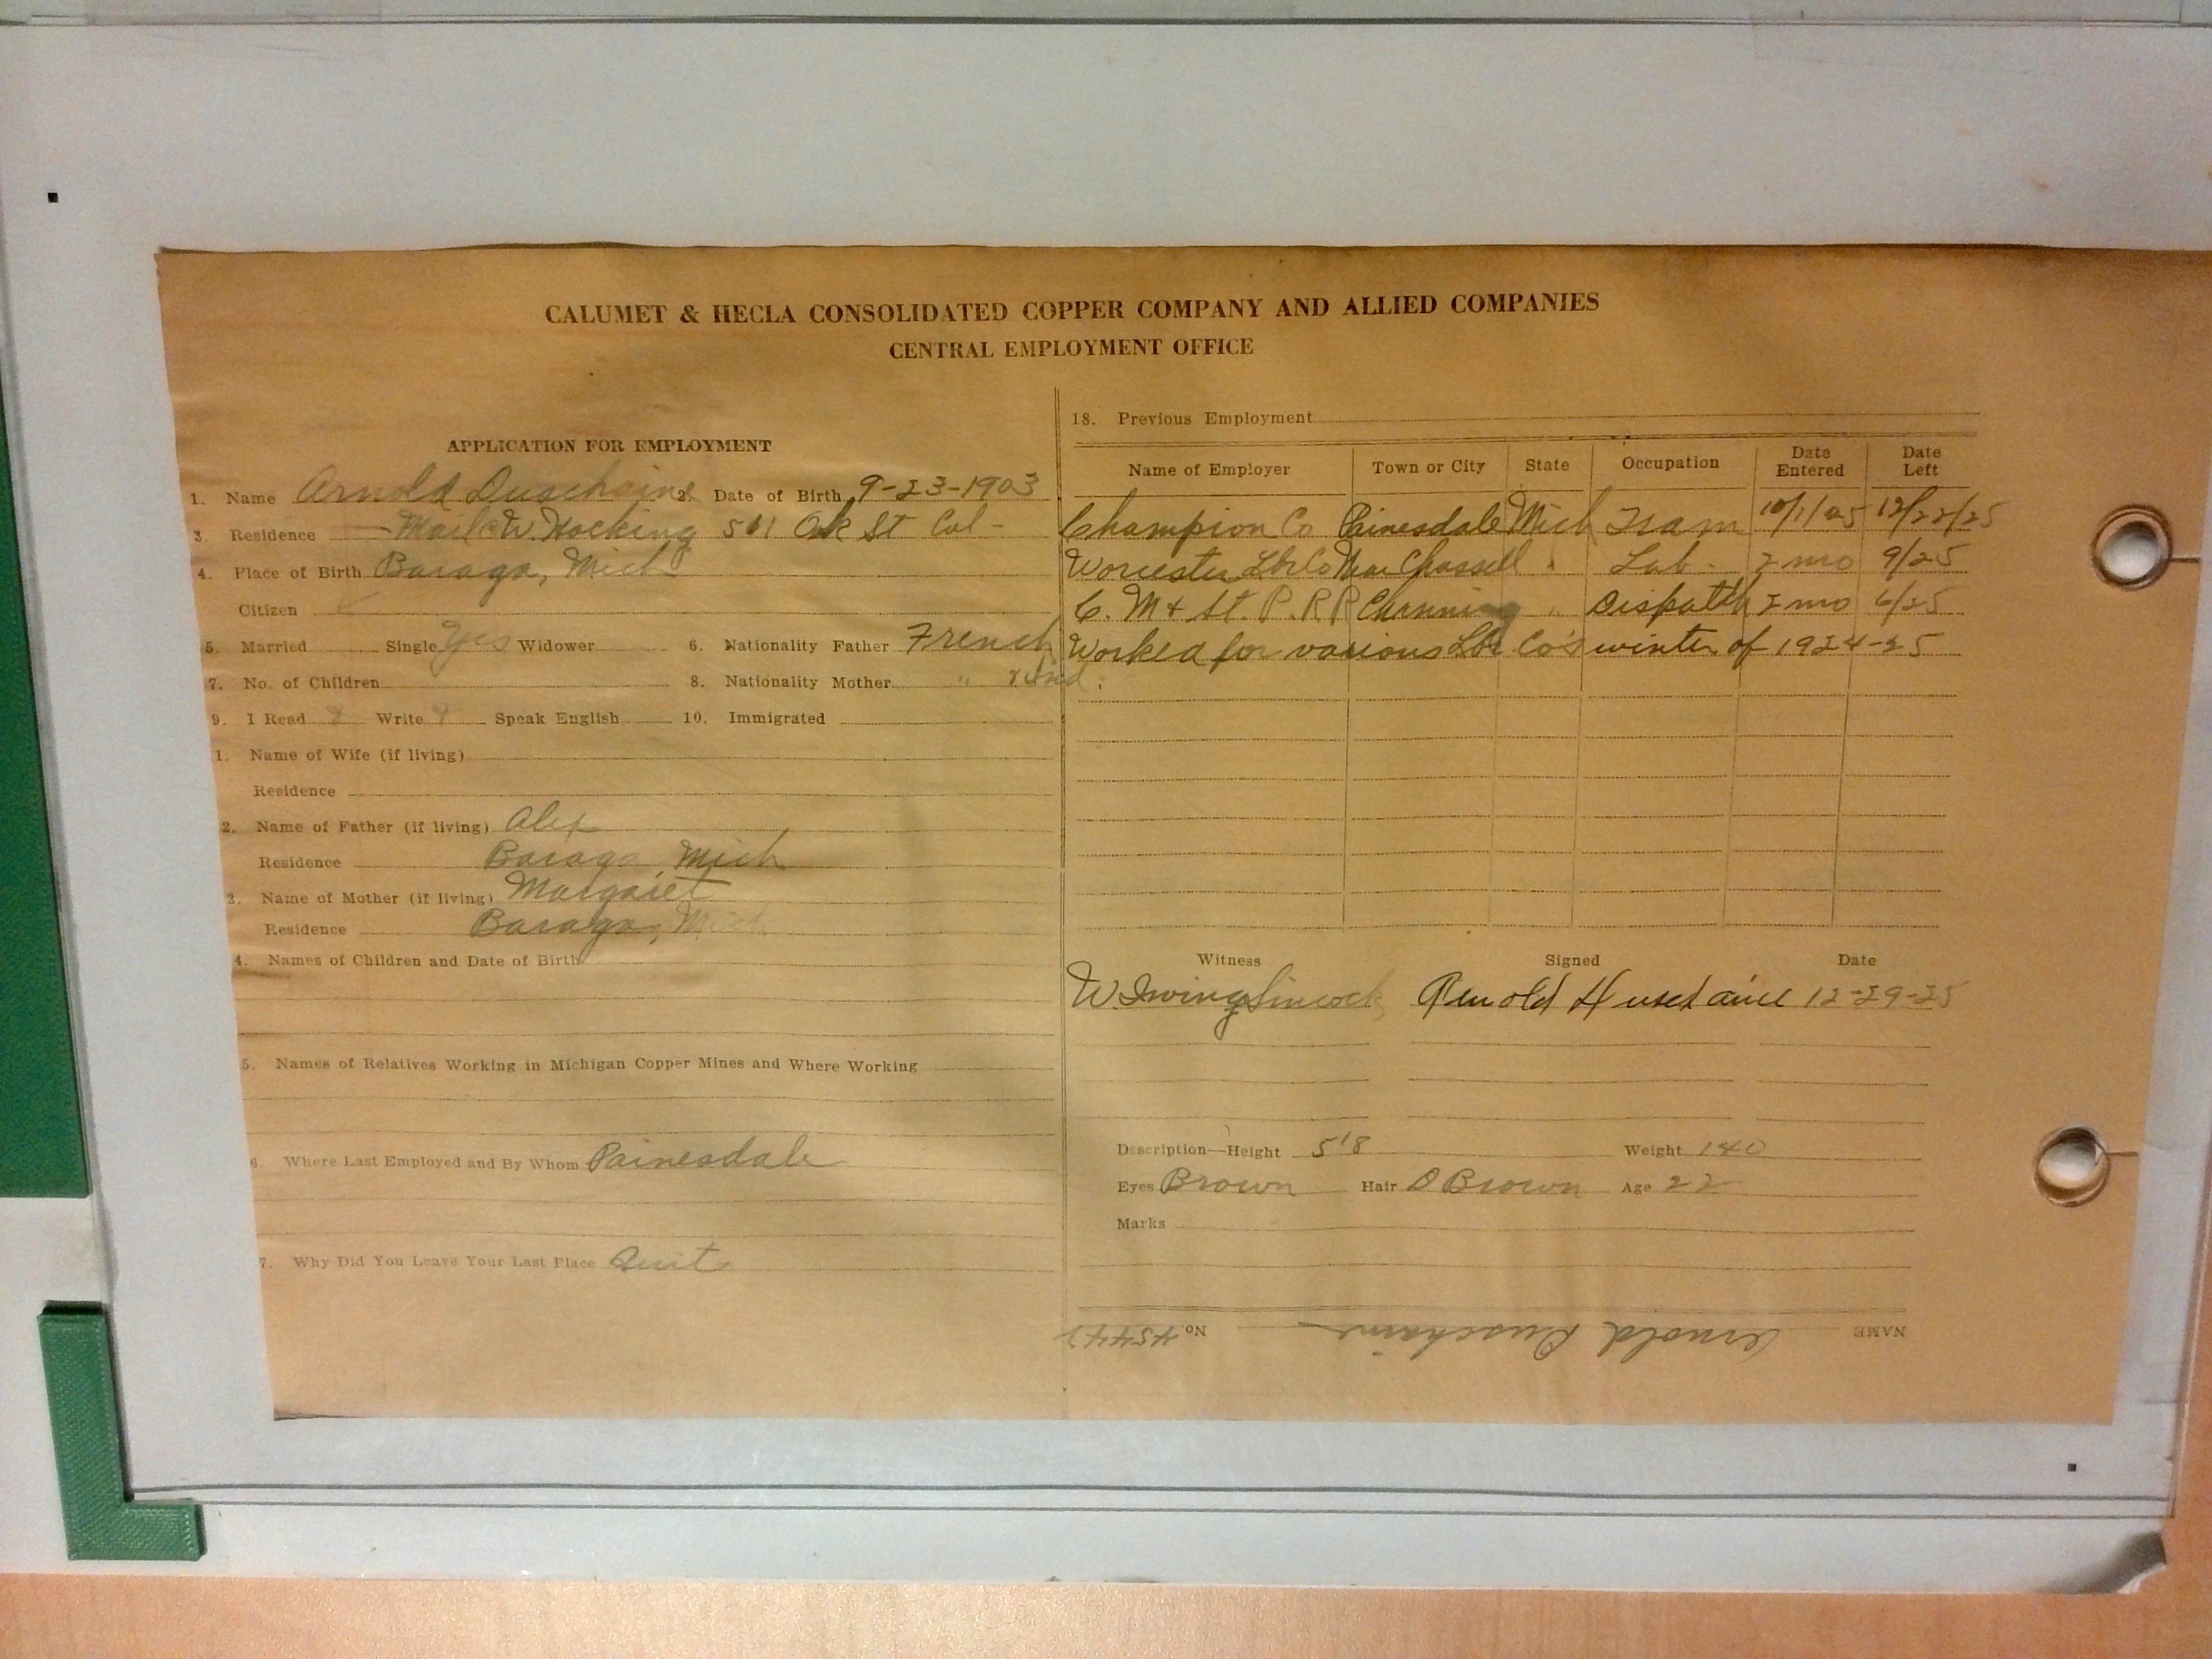 CALUMET & HECLA CONSOLIDATED COPPER COMPANY AND ALLIED COMPANIES
CENTRAL EMPLOYMENT OFFICE
APPLICATION FOR EMPLOYMENT
1. Name Arnold Duschaine 2. Date of Birth 9-23-1903
3. Residence W. Hocking 511 Oak St Cal-
4. Place of Birth Baraga, Mich
Citizen
5. Married Single Yes Widower 6. Nationality Father French
7. No. of Children 8. Nationality Mother " & Ind.
9. I Read Write Speak English 10. Immigrated
1. Name of Wife (if living)
Residence
2. Name of Father (if living) Alex
Residence Baraga Mich
3. Name of Mother (if living) Margaret
Residence Baraga, Mich
4. Names of Children and Date of Birth
5. Names of Relatives Working in Michigan Copper Mines and Where Working
6. Where Last Employed and By Whom Painesdale
7. Why Did You Leave Your Last Place Quit
18. Previous Employment
Name of Employer Town or City State Occupation Date Entered Date Left
Champion Co Painesdale Mich Tram 10/1/25 12/22/25
Worcester Lbr Co Near Chassell " Lab. 2 mo 9/25
C. M & St. P. R R Channing " Dispatch 2 mo 6/25
Worked for various Lbr Co's winter of 1924-25
Witness Signed Date
W. Irving Sincock Arnold Duschaine 12-29-25
Description—Height 5'8 Weight 140
Eyes Brown Hair D Brown Age 22
Marks
NAME Arnold Duschaine No.